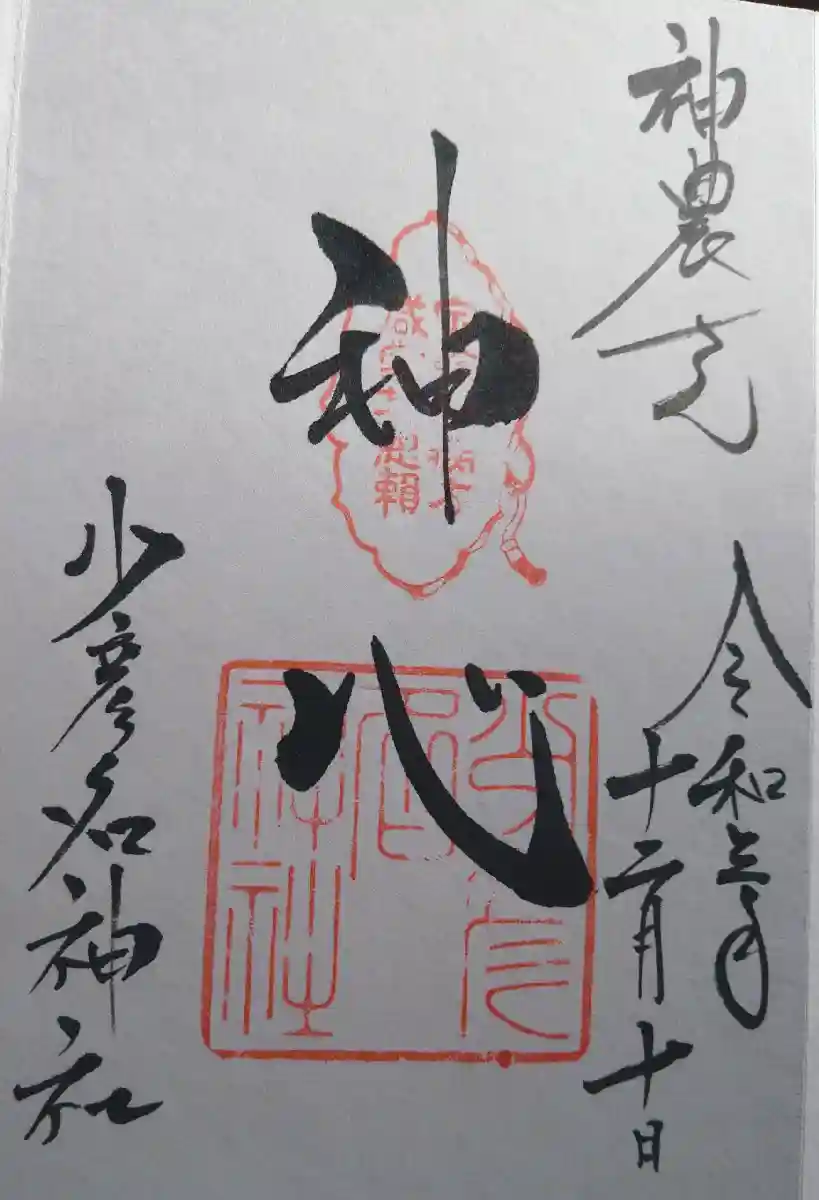 神農さん
令和三年
十二月十日
神
心
少彦名神社
少彦名神社